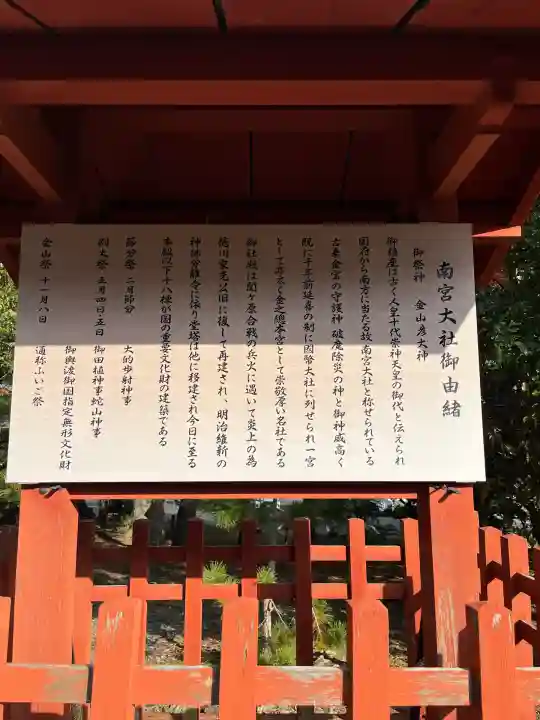 南宮大社御由緒
御祭神 金山彦大神
御鎮座は古く人皇十代崇神天皇の御代と伝えられ
国府から南宮に当たる故南宮大社と称せられている
古来金宮の守護神 破魔除災の神と御神威高く
既に千年前延喜の制に国幣大社に列せられ一宮
として亦たく金之總本宮として崇敬厚い名社である
御社殿は関ヶ原合戦の兵火に遇いて炎上の為
徳川家光以旧に復して再建され、明治維新の
神佛分離令に依り堂塔は他に移建され今日に至る
本殿以下十八棟が国の重要文化財の建築である
節分祭 二月節分 大的歩射神事
例大祭 五月四日五日 御田植神事蛇山神事
御輿渡御国指定無形文化財
金山祭 十一月八日 通称ふいご祭